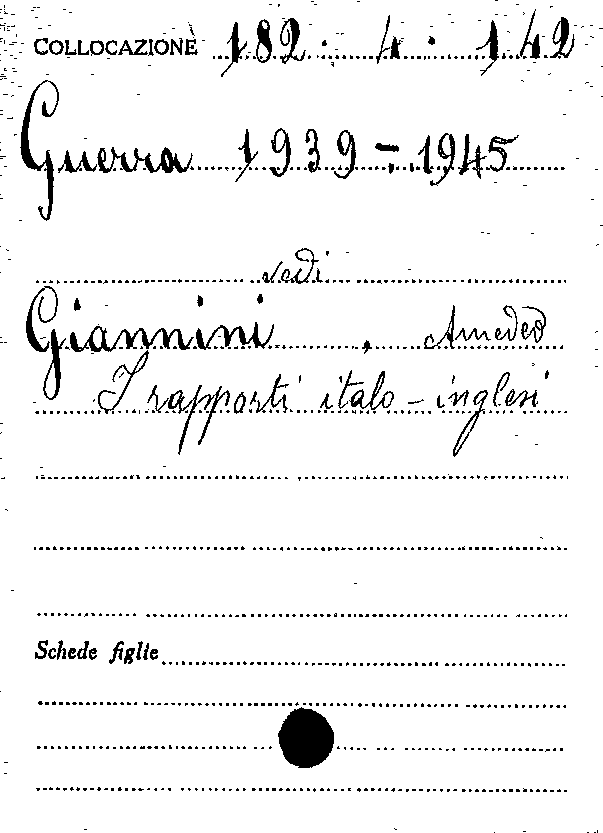 COLLOCAZIONE 182. 4. 142
Guerra 1939-1945
vedi
Giannini, Amedeo
I rapporti italo-inglesi
Schede figlie